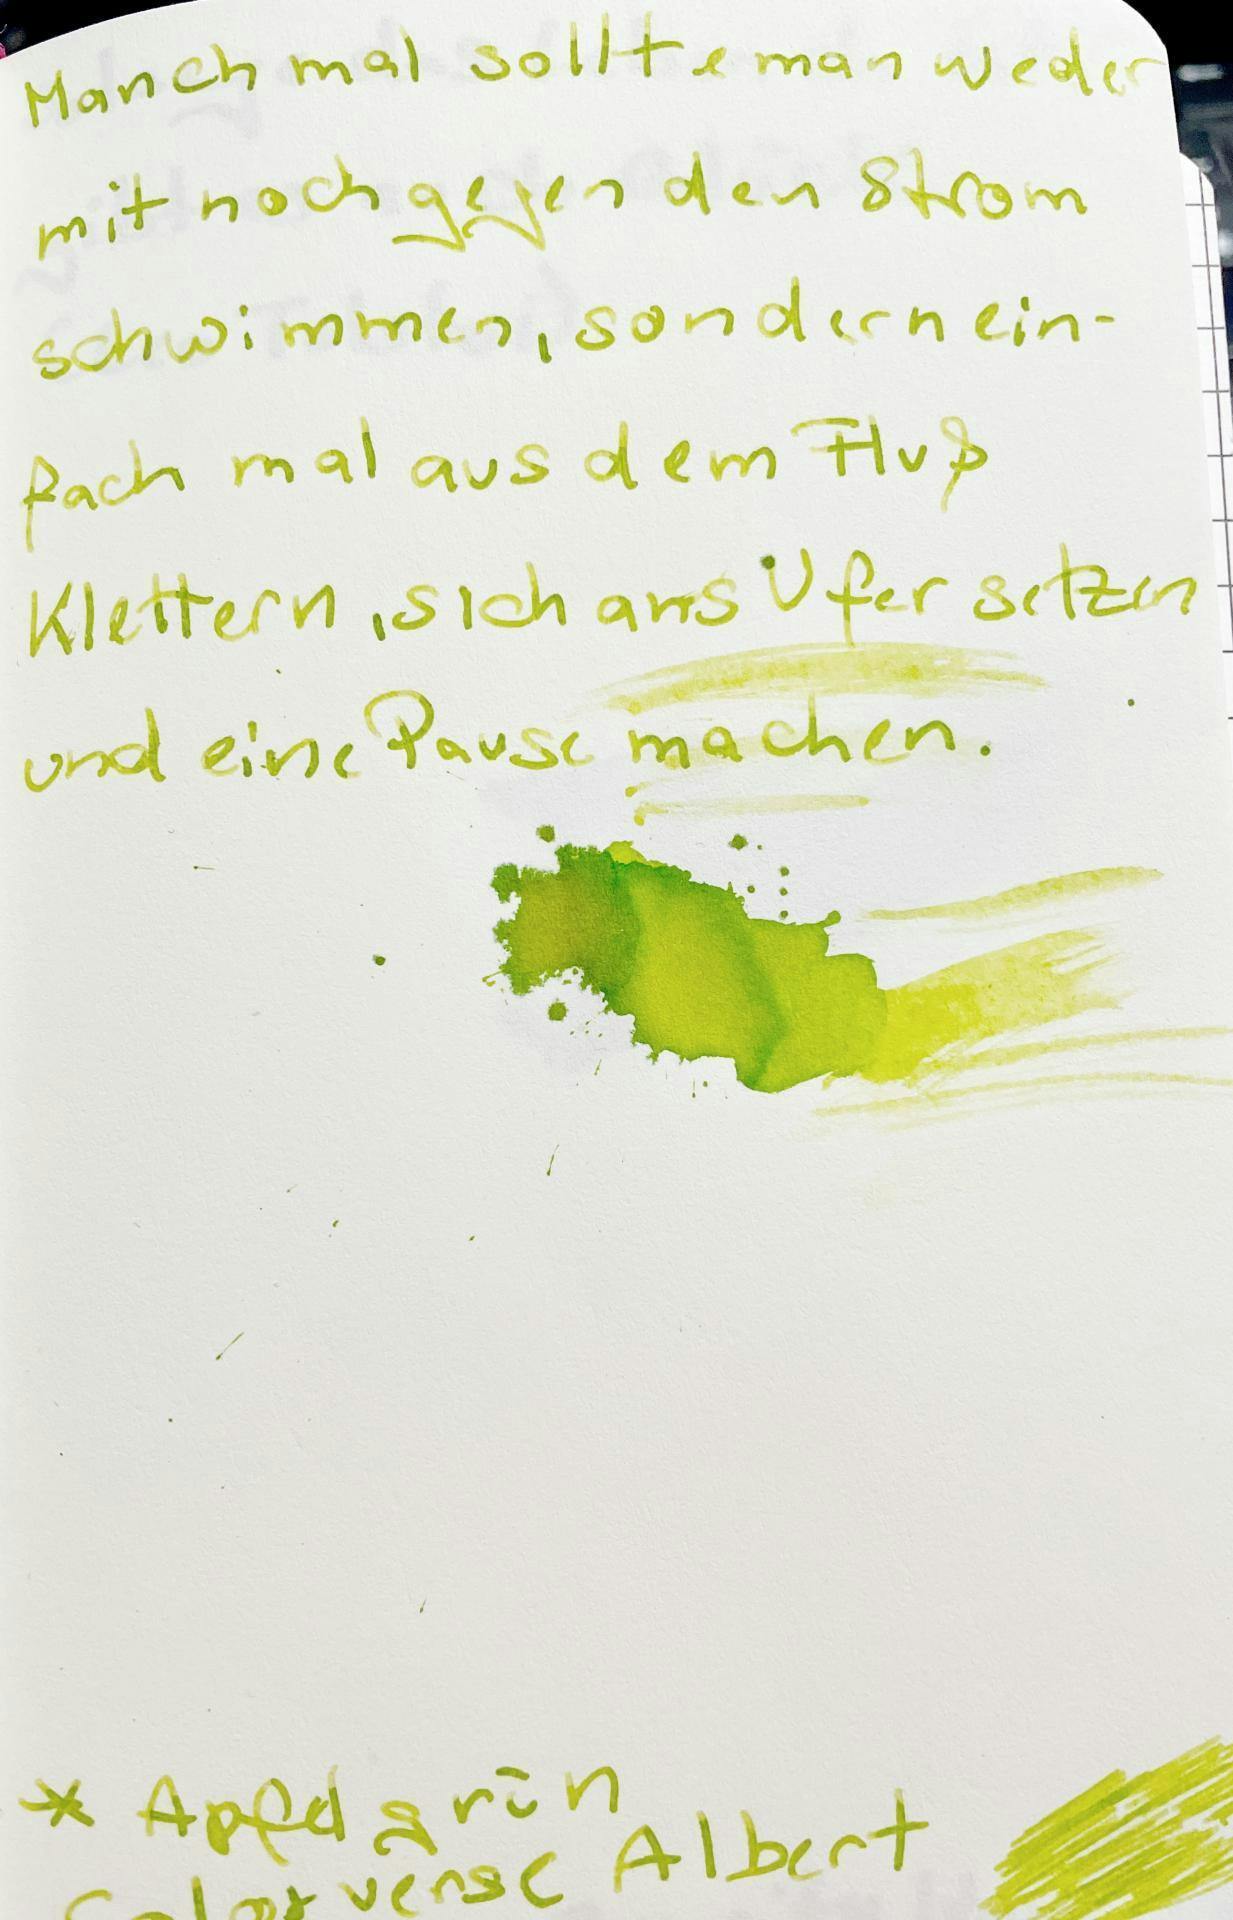 Manchmal sollte man weder
mit noch gegen den Strom
schwimmen, sondern ein-
fach mal aus dem Fluß
Klettern, sich ans Ufer setzen
und eine Pause machen.
* Apfelgrün
Colorverse Albert